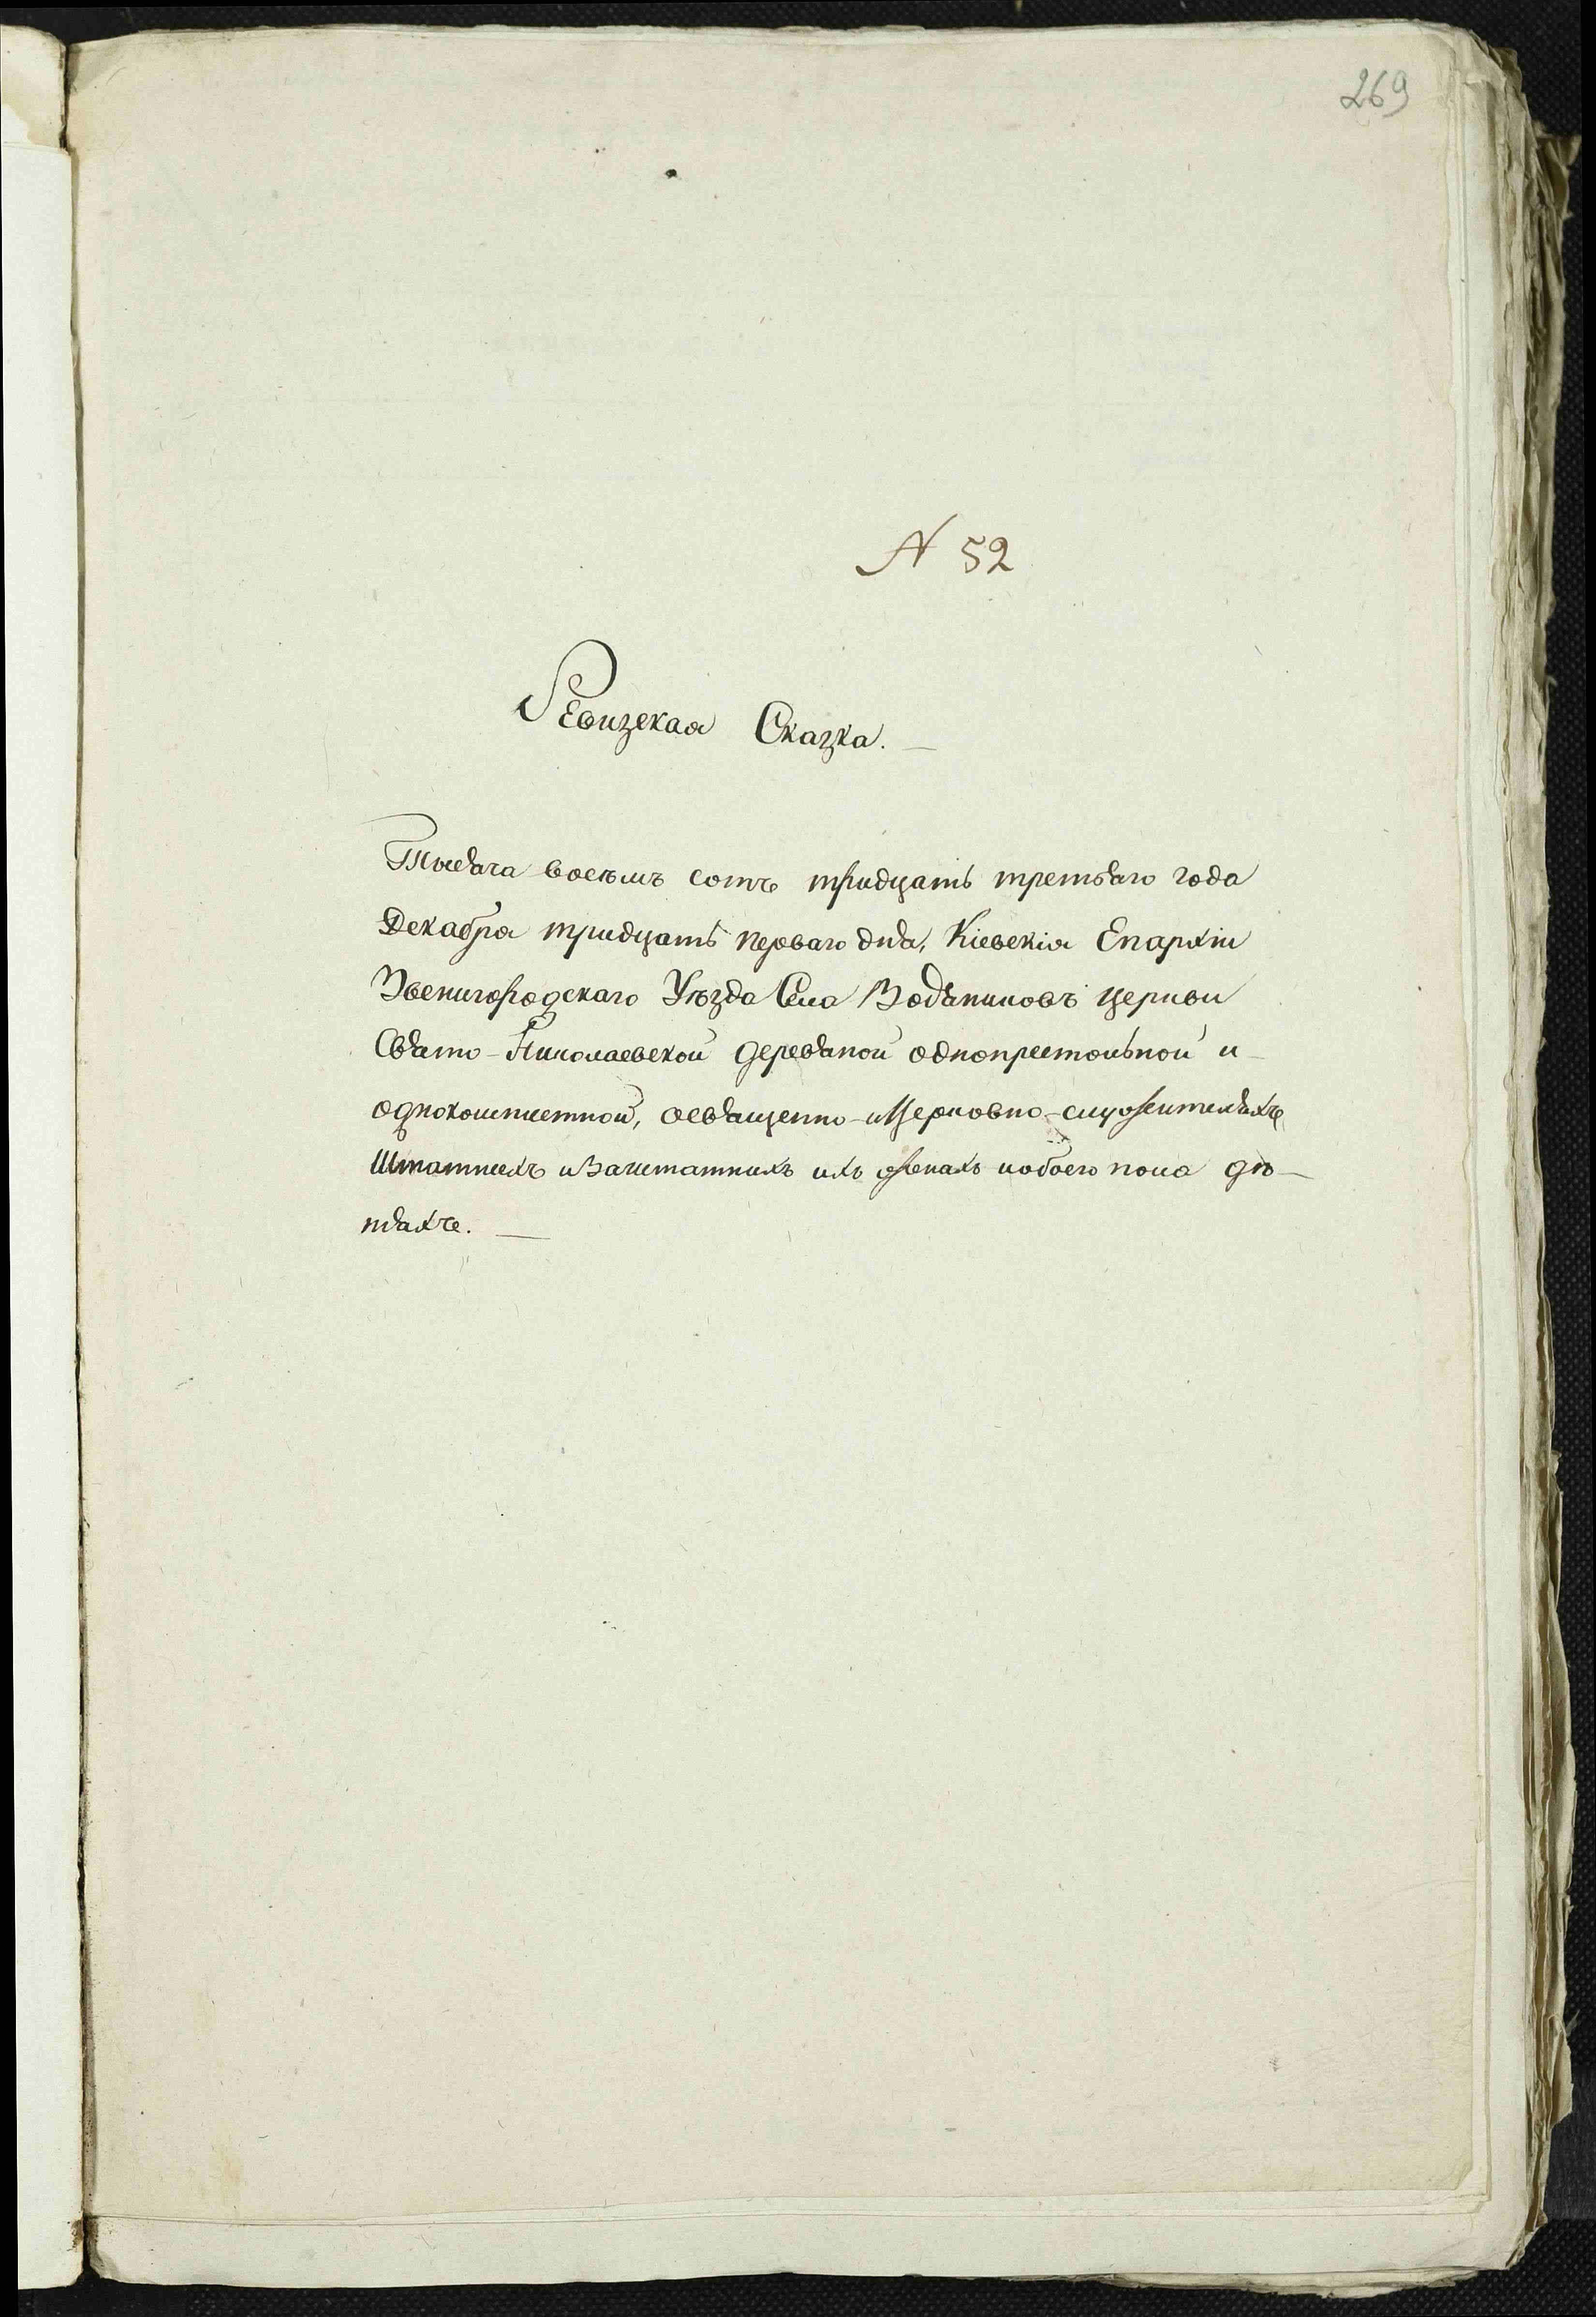 269
N 52
Ревизская Сказка.
Тысяча восемъ сотъ тридцать третьяго года
Декабря тридцать перваго дня, Кіевскія Епархіи
Звенигородскаго Уѣзда Села Водяниковъ церкви
Свято-Николаевской деревяной однопрестольной и
одноклиптной, освященно-и Церковно-служителяхъ
Штатныхъ и Заштатныхъ ихъ женахъ и обоего пола дѣ-
тяхъ.